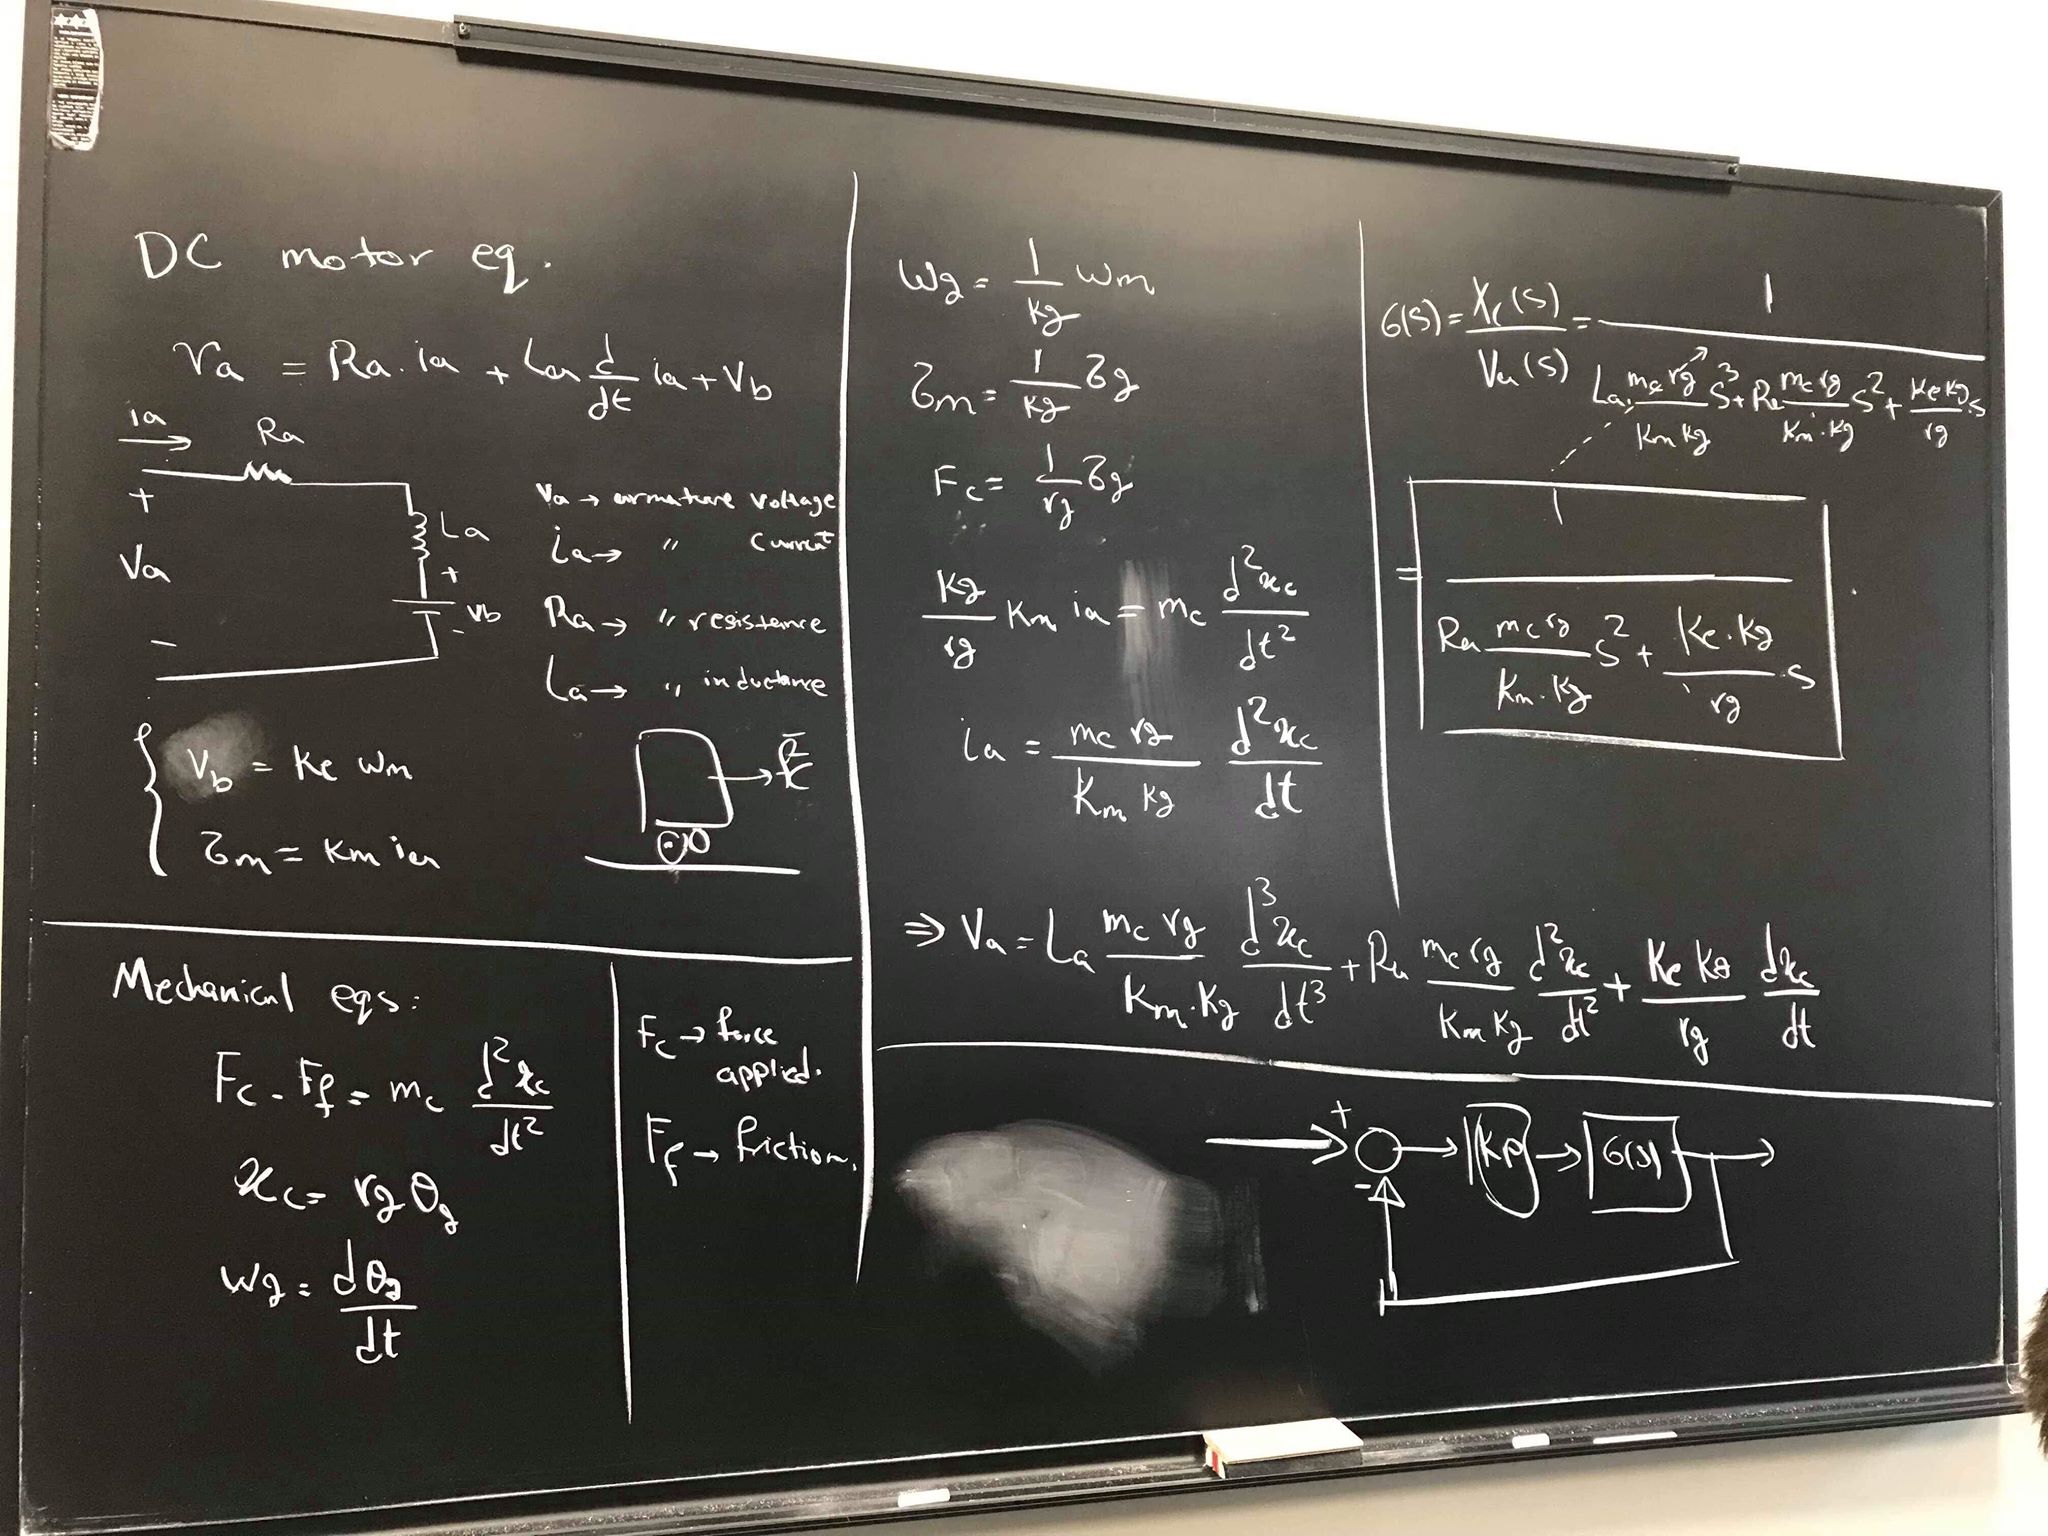 DC motor eq.
Va = Ra . ia + La d/dt ia + Vb
ia
Ra
+
Va
-
La
+
Vb
-
Va → armature voltage
ia → " current
Ra → " resistance
La → " inductance
{ Vb = Ke ωm
τm = Km ia
Mechanical eqs:
Fc - Ff = mc d²xc/dt²
xc = rg θg
ωg = dθg/dt
Fc → force
applied.
Ff → friction.
ωg = 1/kg ωm
τm = 1/kg τg
Fc = 1/rg τg
kg/rg Km ia = mc d²xc/dt²
ia = mc rg/Km kg d²xc/dt
⇒ Va = La mc rg/Km.Kg d³xc/dt³ + Ra mc rg/Km Kg d²xc/dt² + Ke Kg/rg dxc/dt
G(s) = Xc(s)/Va(s) = 1/(La mc rg/Km Kg S³ + Ra mc rg/Km.Kg S² + Ke Kg/rg S)
= 1/(Ra mc rg/Km.Kg S² + Ke.Kg/rg . S)
+
-
Kp
G(s)